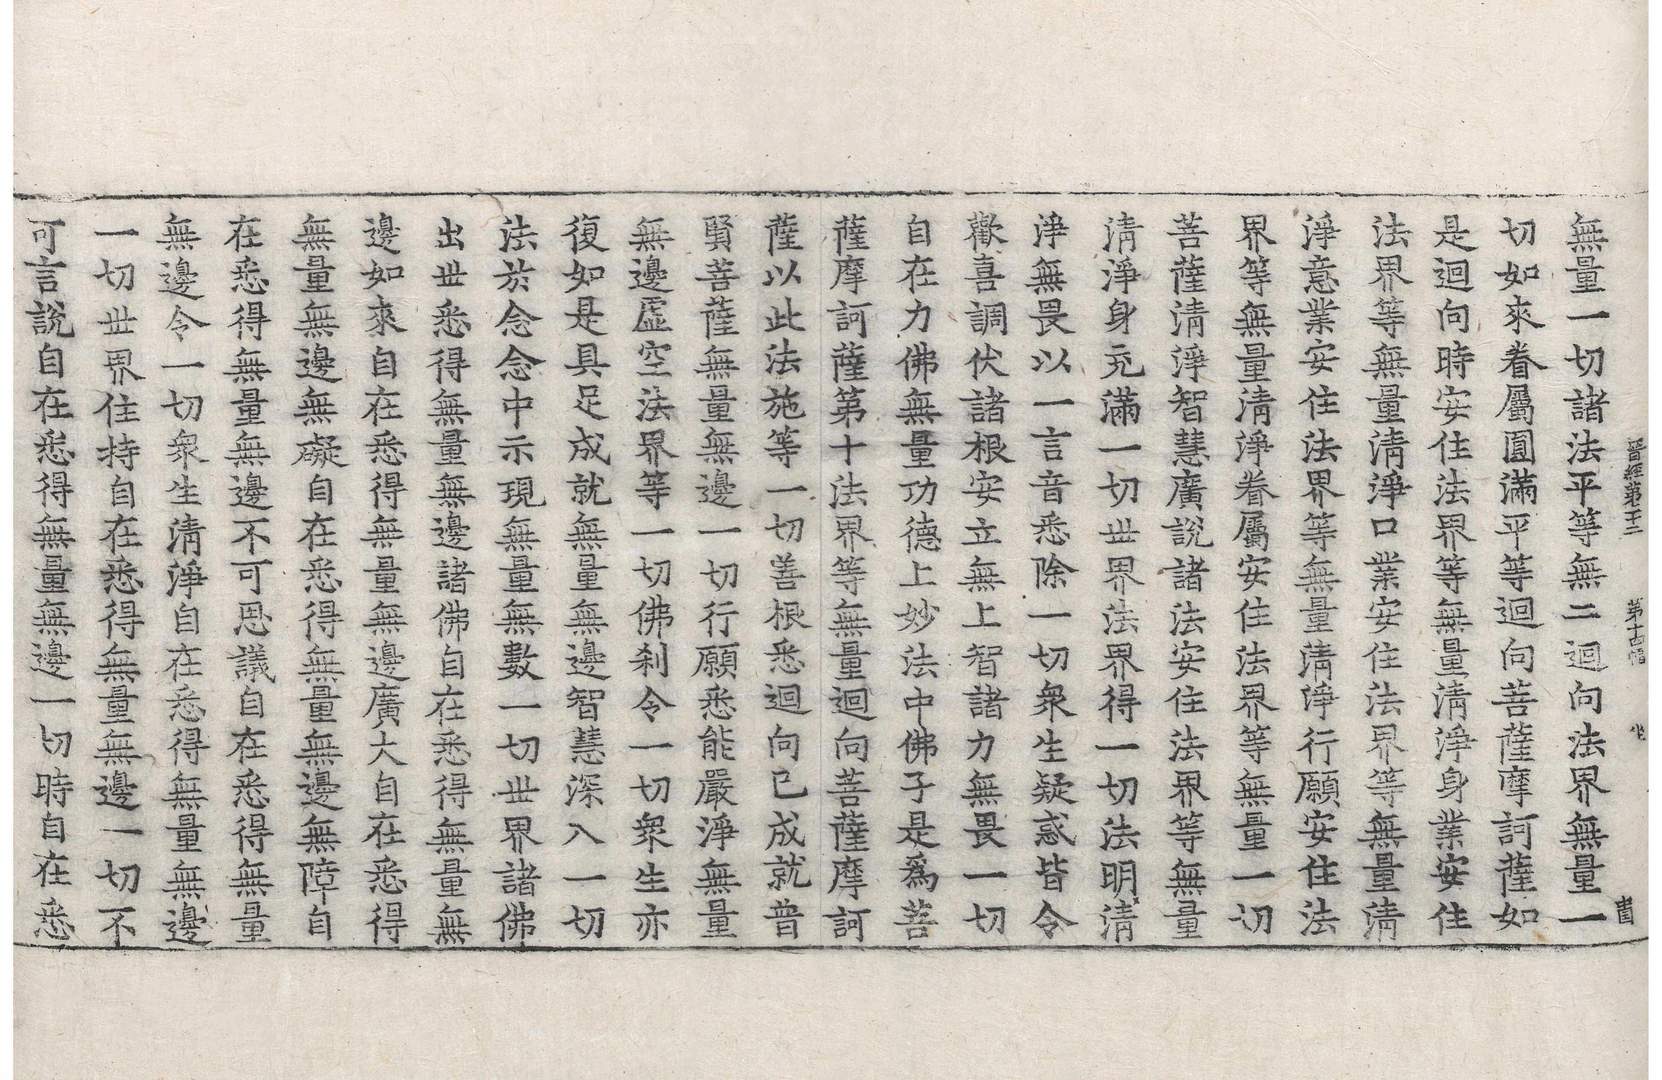 晉經第二十二　第十四幅　坐
無量一切諸法平等無二迴向法界無量一
切如來眷屬圓滿平等迴向菩薩摩訶薩如
是迴向時安住法界等無量清淨身業安住
法界等無量清淨口業安住法界等無量清
淨意業安住法界等無量清淨行願安住法
界等無量清淨眷屬安住法界等無量一切
菩薩清淨智慧廣說諸法安住法界等無量
清淨身充滿一切世界法界得一切法明清
淨無畏以一言音悉除一切衆生疑惑皆令
歡喜調伏諸根安立無上智諸力無畏一切
自在力佛無量功德上妙法中佛子是爲菩
薩摩訶薩第十法界等無量迴向菩薩摩訶
薩以此法施等一切善根悉迴向已成就普
賢菩薩無量無邊一切行願悉能嚴淨無量
無邊虛空法界等一切佛刹令一切衆生亦
復如是具足成就無量無邊智慧深入一切
法於念念中示現無量無數一切世界諸佛
出世悉得無量無邊諸佛自在悉得無量無
邊如來自在悉得無量無邊廣大自在悉得
無量無邊無礙自在悉得無量無邊無障自
在悉得無量無邊不可思議自在悉得無量
無邊令一切衆生清淨自在悉得無量無邊
一切世界住持自在悉得無量無邊一切不
可言說自在悉得無量無邊一切時自在悉